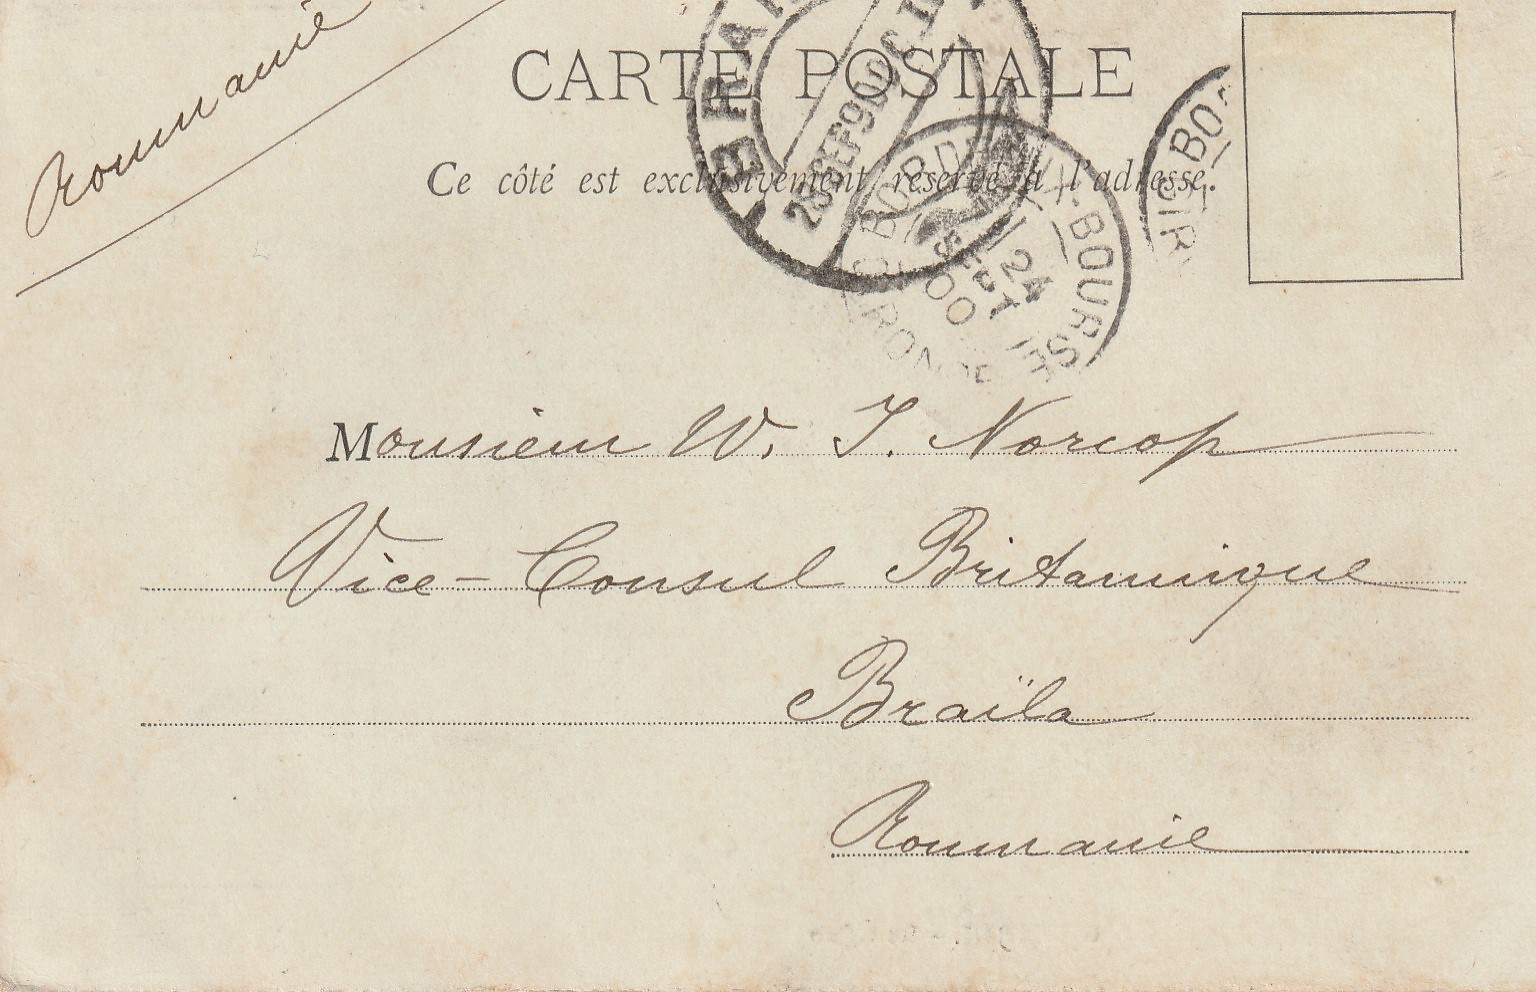 Roumanie
CARTE POSTALE
Ce côté est exclusivement réservé à l'adresse.
BRAI
28 SEP 900
BORDEAUX-BOURSE
24
SEPT
00
GIRONDE
BO
GIR
Monsieur W. J. Norcop
Vice-Consul Britannique
Braïla
Roumanie